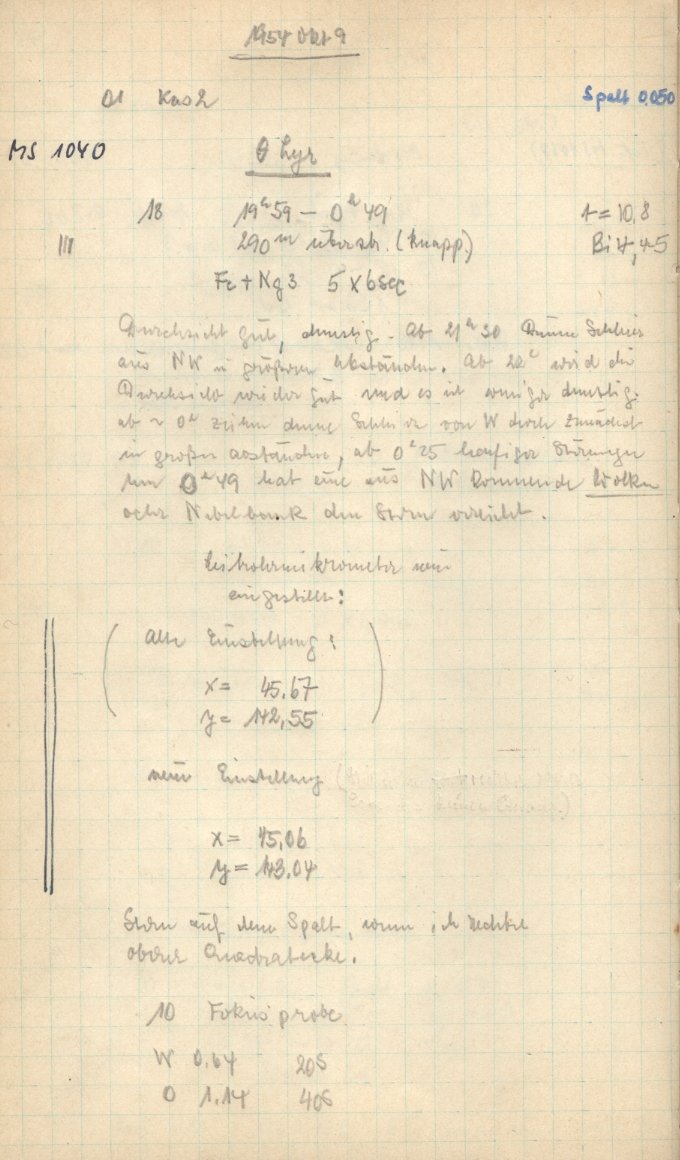 1954 Okt 9
01 Kas 2 Spalt 0,050
MS 1040 θ Lyr
18 19ʰ59 – 0ʰ49 t = 10,8
III 290ᵐ überstr. (knapp.) Bi 4,45
Fe + Ng 3 5 x 6 sec
Durchsicht gut, dunstig. Ab 21ʰ30 Dünne Schleier
aus NW in größeren Abständen. Ab wird die
Durchsicht wieder gut und es ist weniger dunstig.
ab ~ 0ʰ ziehen dünne Schleier von W durch zunächst
in großen abständen, ab 0ʰ25 häufiger Störungen
um 0ʰ49 hat eine aus NW kommende Wolken
oder Nebelbank den Stern erreicht.
Leitrohrmikrometer neu
eingestellt:
( alte Einstellung:
x = 45,67
y = 142,55 )
neue Einstellung
x = 45,06
y = 143,04
Stern auf dem Spalt, wenn in rechter
oberer Quadratecke.
10 Fokusprobe
W 0,64 20S
O 1,14 40S